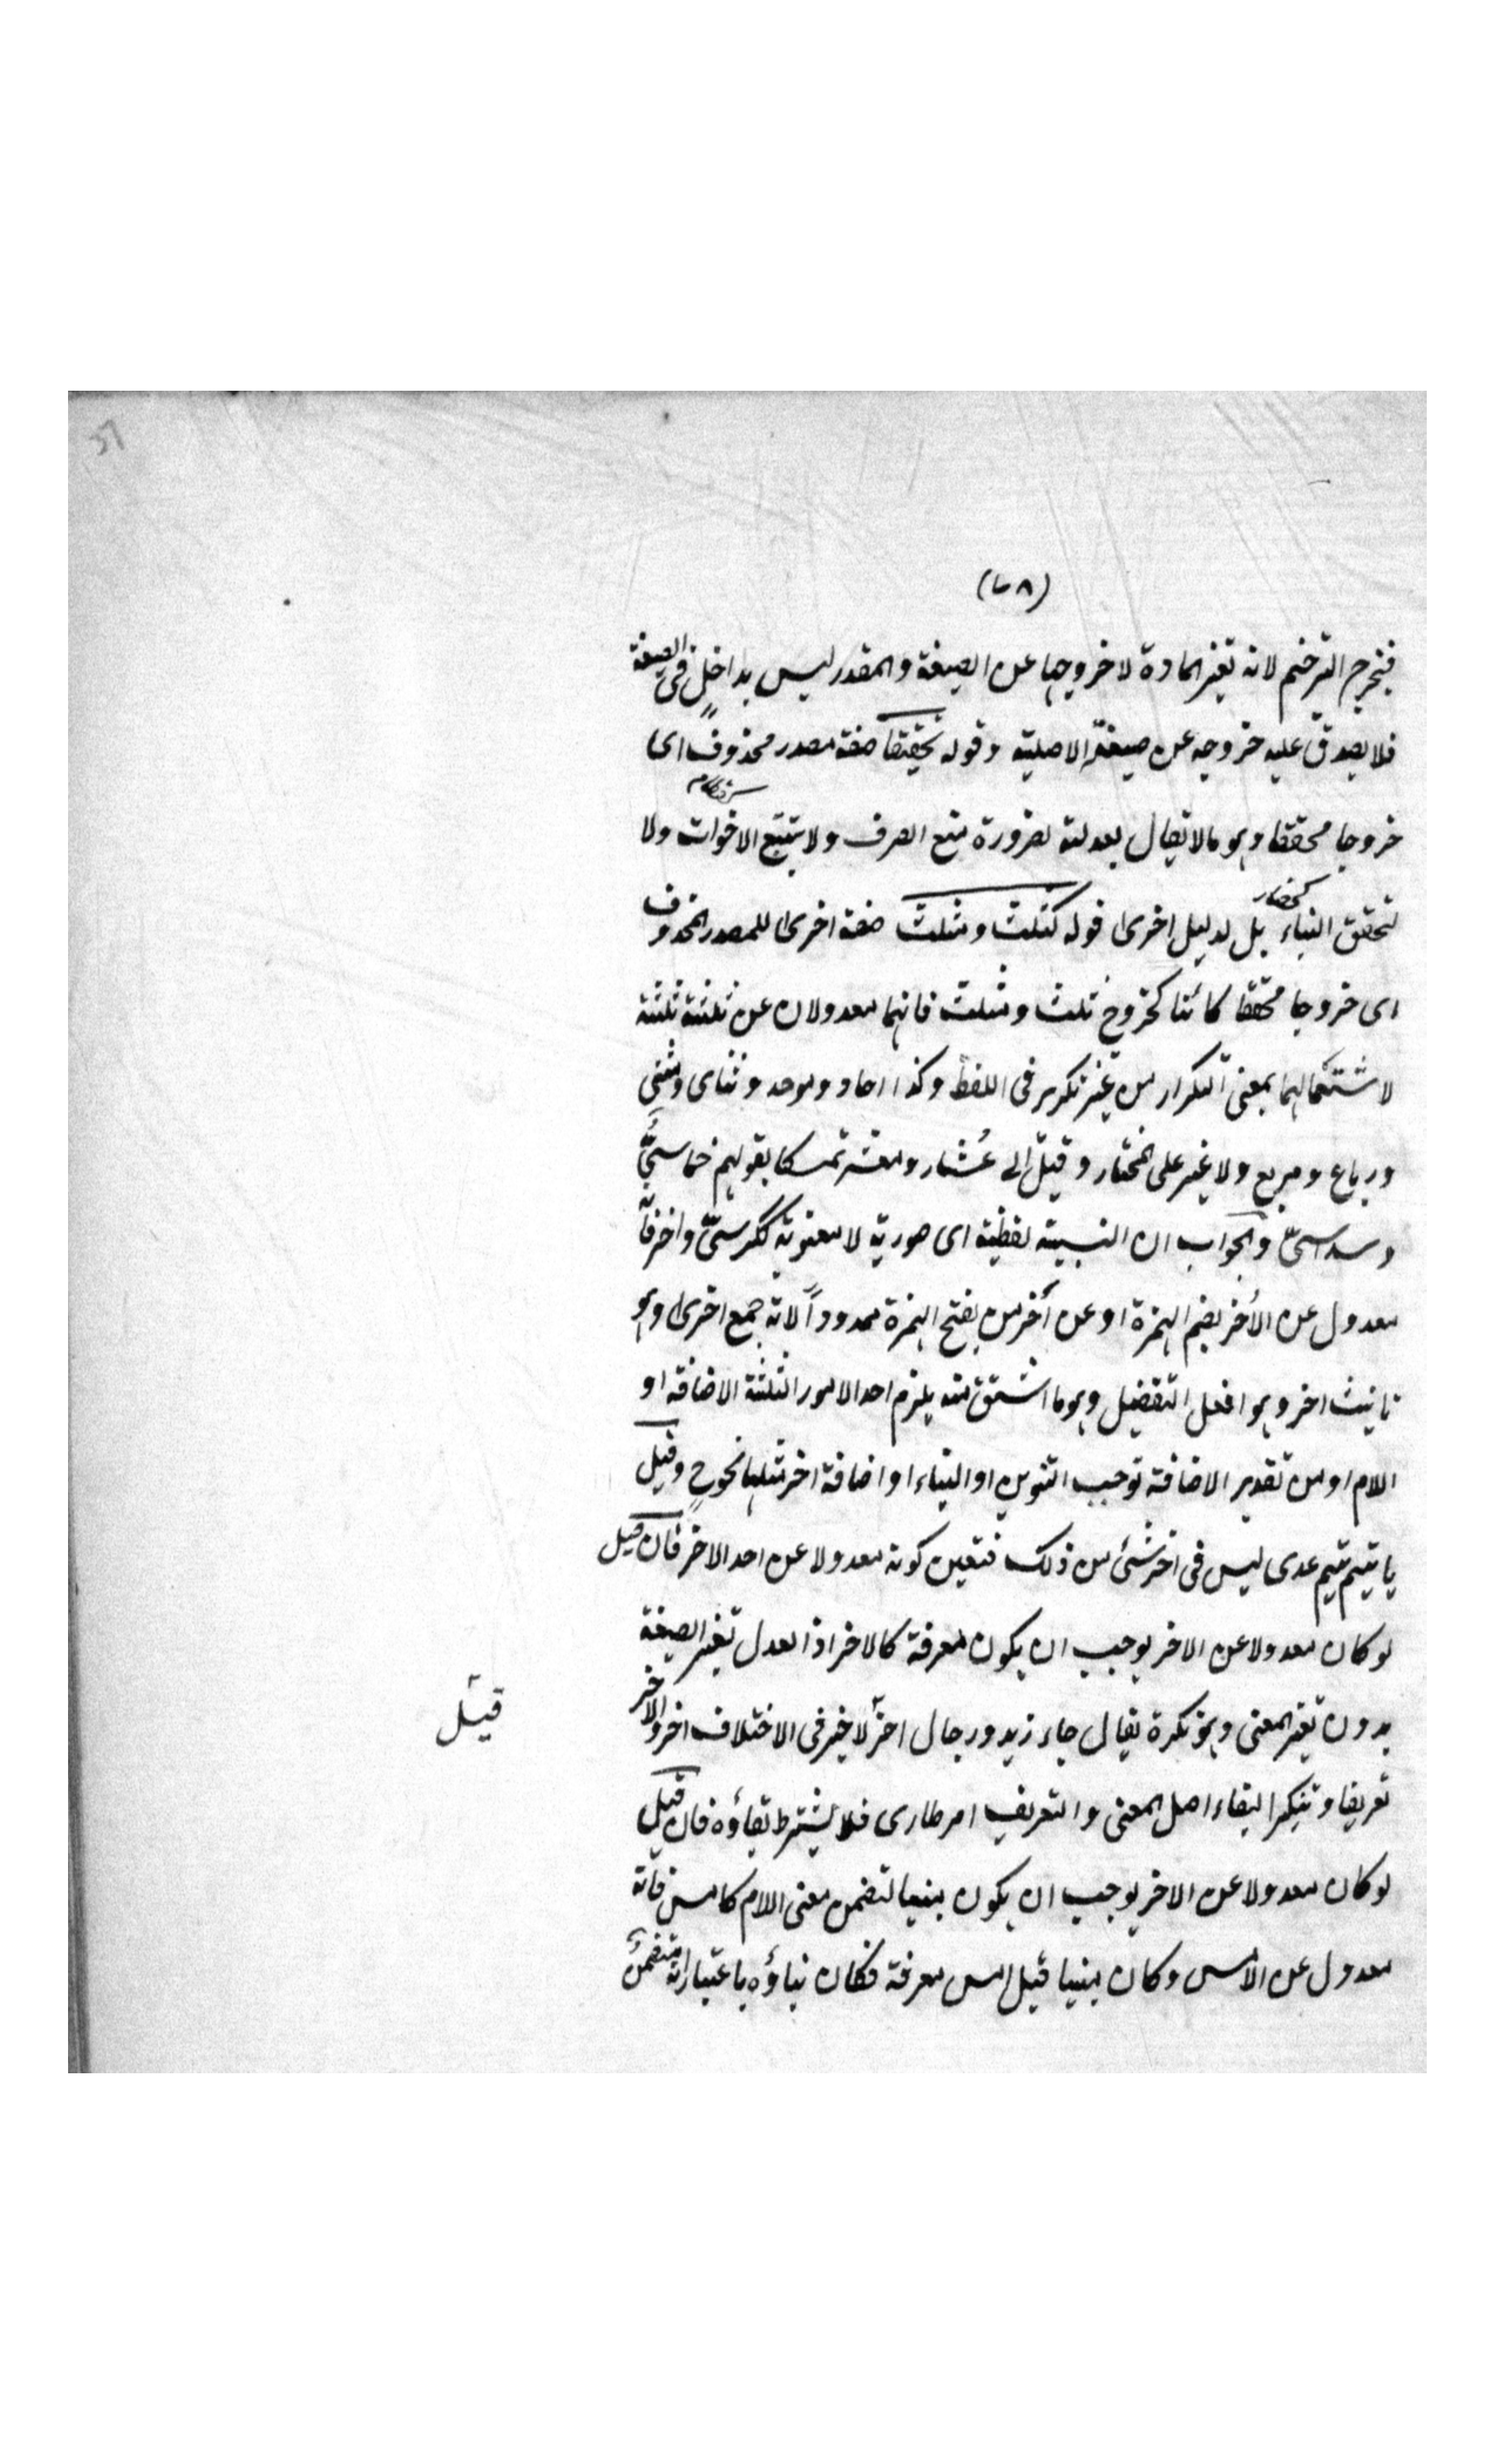 (٧٨)
فيخرج الترخيم لانه تغير المادة لا خروجها عن الصيغة والمقدر ليس بداخل فى الصيغة
فلا يصدق عليه خروجه عن صيغته الاصلية وقوله تحقيقا صفة مصدر محذوف اى
خروجا محققا وهو ما لا يقال بعدلته لضرورة منع الصرف ولا يتتبع الاخوات ولا
كحضار
لتحقق البناء بل لدليل اخرى قوله كثلث ومثلث صفة اخرى للمصدر المحذوف
اى خروجا محققا كائنا كخروج ثلث ومثلث فانهما معدولان عن ثلثة ثلثة
لاشتمالهما بمعنى التكرار من غير تكرير فى اللفظ وكذا احاد وموحد وثناى ومثنى
ورباع ومربع ولا غير على المختار وقيل الى عُشار ومعشر تمسكا بقولهم خماسىٌّ
وسداسىّ والجواب ان النسبية لفظية اى صورية لا معنوية ككرسىّ واخر فانّه
معدول عن الأخر بضم الهمزة او عن آخر من بفتح الهمزة ممدوداً لانه جمع اخرى وهو
تانيث اخر وهو افعل التفضيل وهو ما اشتق منه يلزم احد الامور الثلثة الاضافة او
اللام او من تقدير الاضافة توجب التنوين او البناء او اضافة اخر مثلها نحو ح وقيل
يا تيم تيم عدى ليس فى اخر شئ من ذلك فتعين كونه معدولا عن احد الاخر فان قيل
لو كان معدولا عن الاخر يوجب ان يكون معرفة كالاخر اذ العدل تغير الصيغة
بدون تغير المعنى وهو نكرة يقال جاء زيد ورجال اخر لا خير فى الاختلاف اخر والاخر
تعريفا وتنكيرا لبقاء اصل المعنى والتعريف امر طارى فلا يشترط بقاؤه فان قيل
لو كان معدولا عن الاخر يوجب ان يكون مبنيا لتضمن معنى اللام كامس فانه
معدول عن الامس وكان مبنيا قيل امس معرفة فكان بناؤه باعتبار انه متضمن
قيل